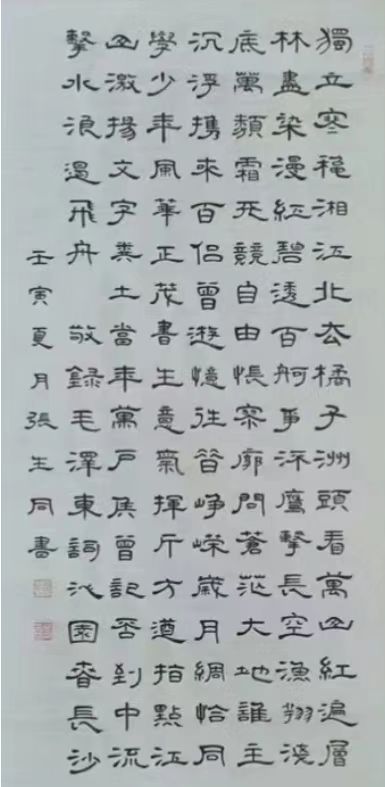 獨立寒穐湘江北去橘子洲頭看萬山紅遍層
林盡染漫紅碧透百舸爭流鷹擊長空漁翔淺
底萬類霜天競自由悵寥廓問蒼茫大地誰主
沉浮携來百侶曾遊憶往昔崢嶸歲月綢恰同
學少年風華正茂書生意氣揮斥方遒指點江
山激揚文字糞土當年萬戶侯曾記否到中流
擊水浪遏飛舟 敬録毛澤東詞沁園春長沙
壬寅夏月張生同書